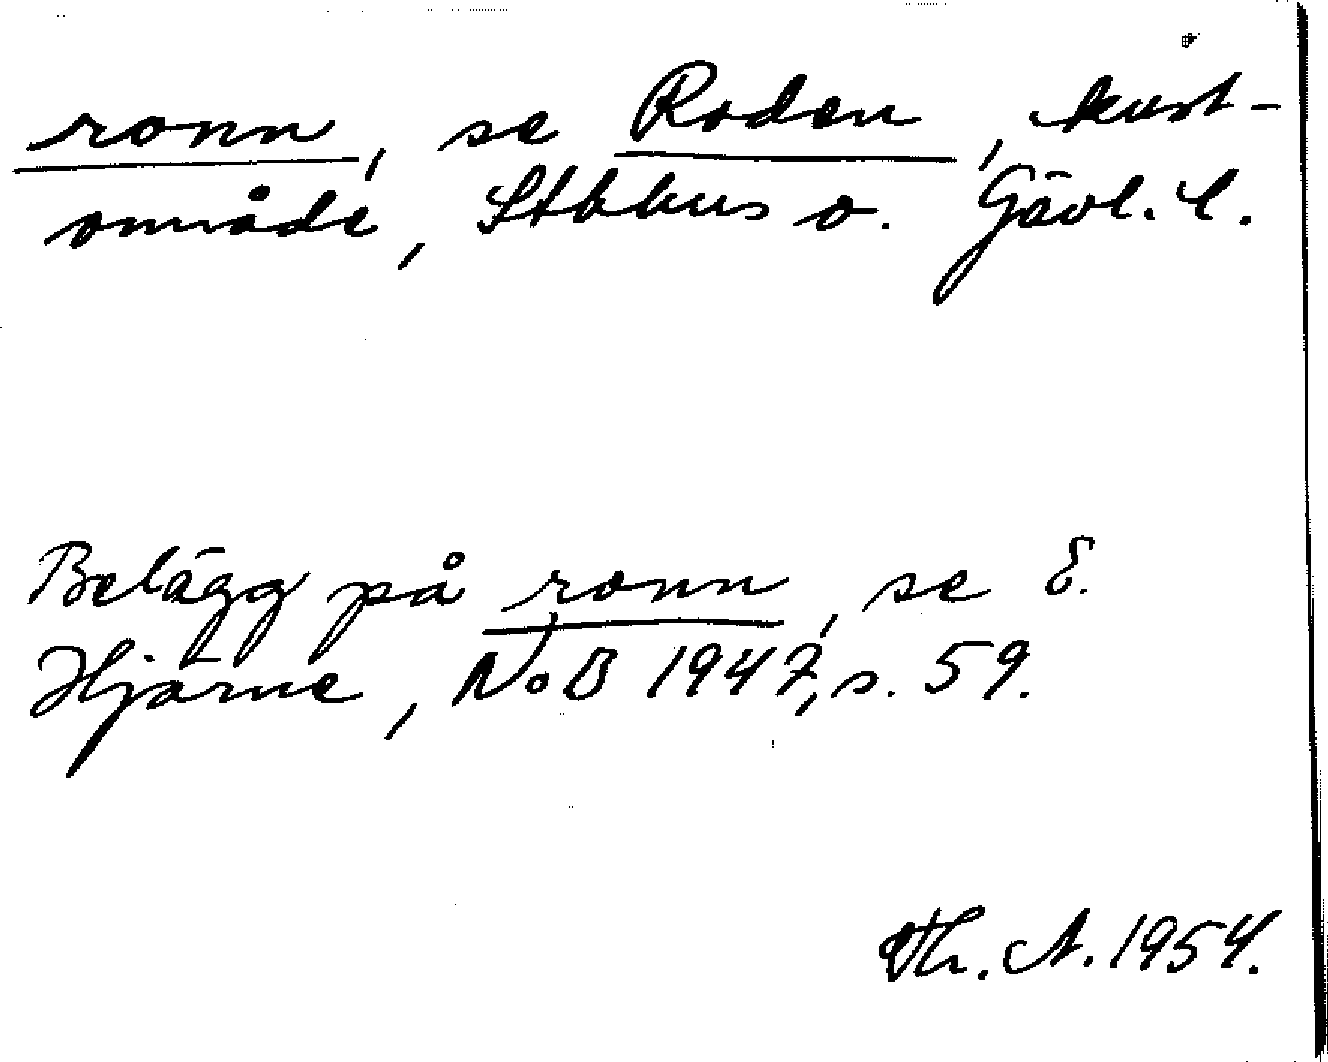 ronn, se Roden, kust-
område, Sthlms o. Gävl. l.
Belägg på ronn, se E.
Hjärne, NoB 1947, s. 59.
Th. A. 1954.